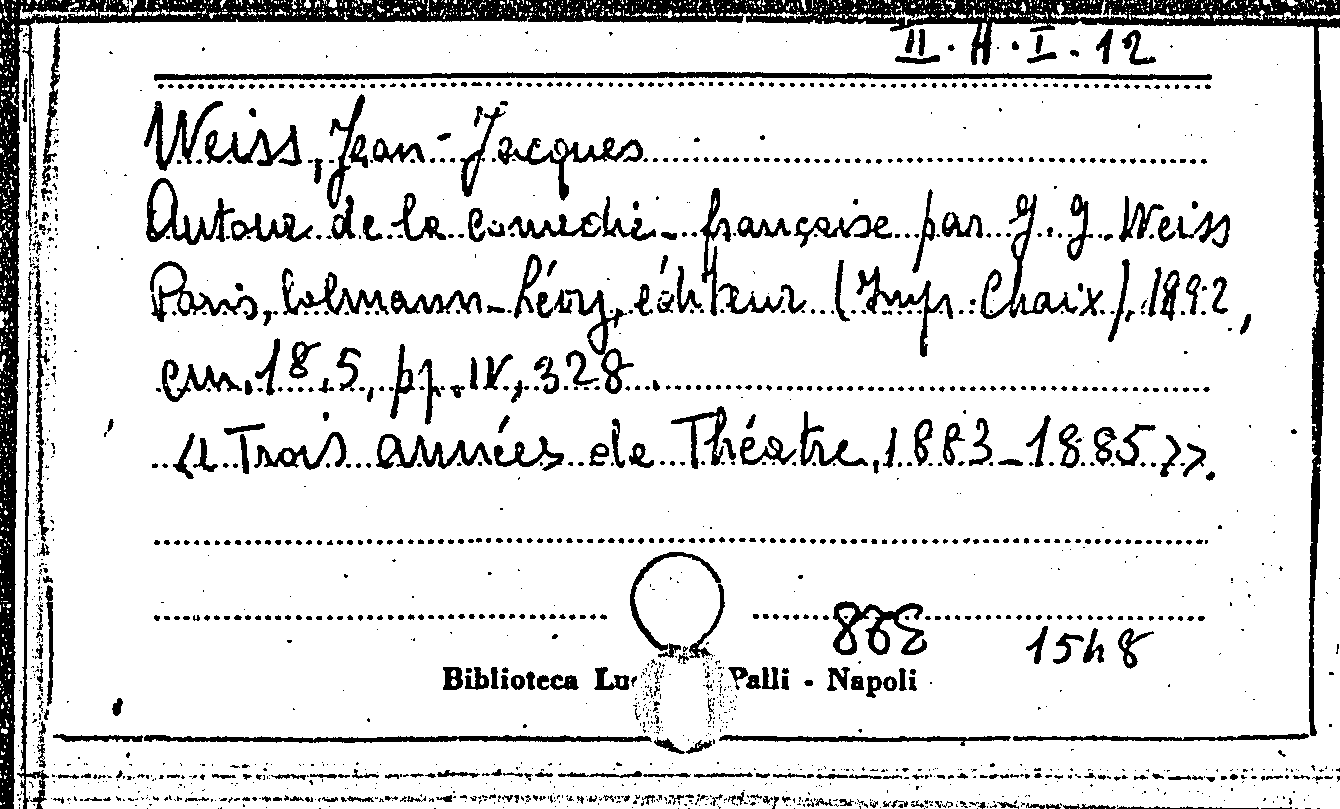 II. H. I. 12
Weiss, Jean-Jacques
Autour de la comedie-française par J. J. Weiss
Paris, Calmann-Lévy, éditeur (Imp. Chaix), 1892,
cm. 18,5, pp. IV, 328.
«Trois années de Théatre, 1883-1885».
1548
Biblioteca Palli - Napoli